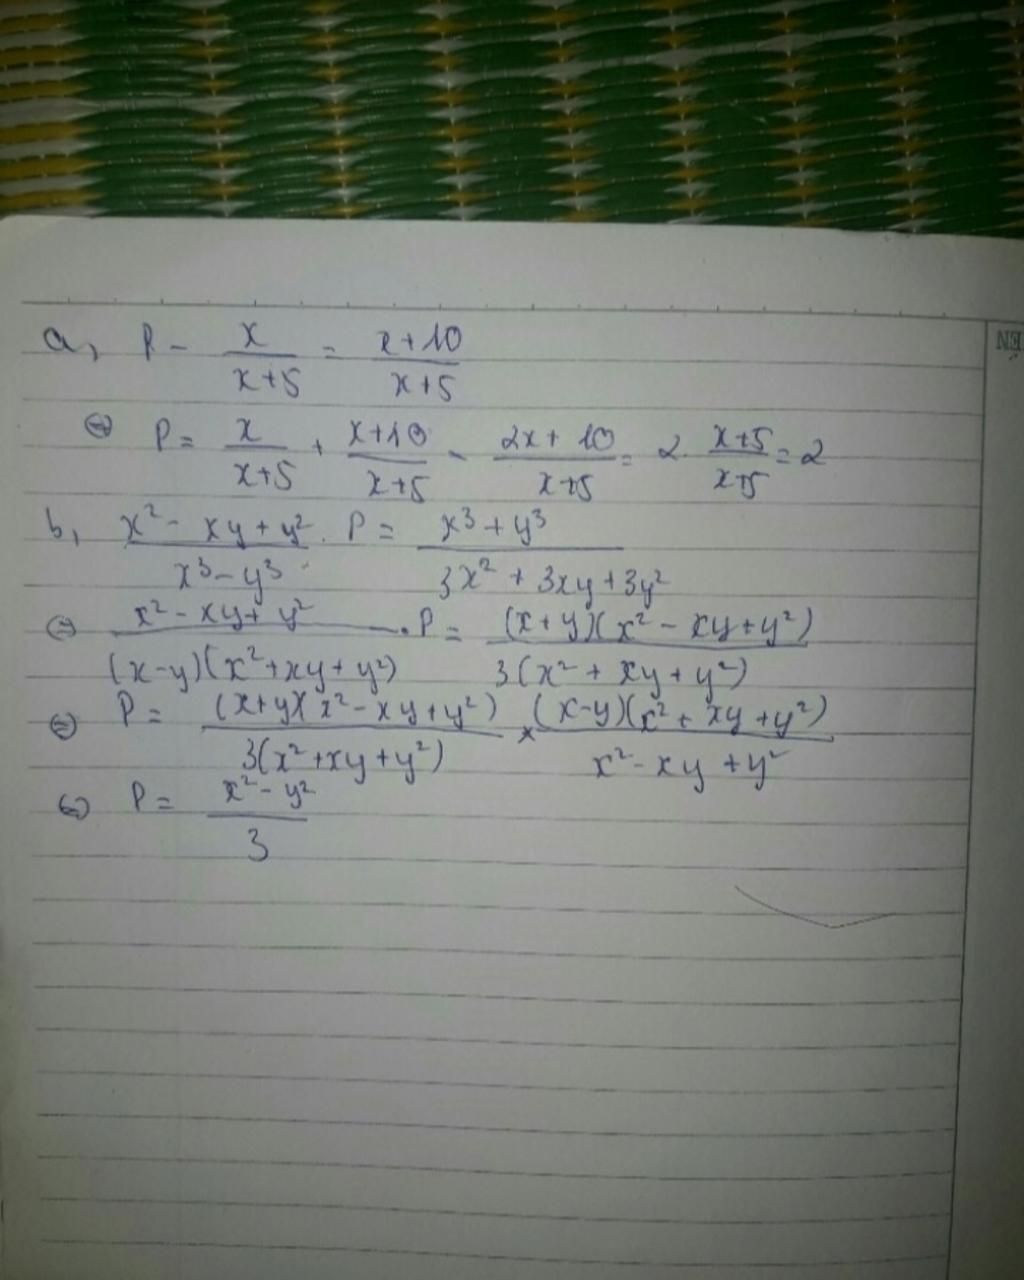 a, P - x/(x+5) = (x+10)/(x+5)
⇔ P = x/(x+5) + (x+10)/(x+5) - (2x+10)/(x+5) = 2. (x+5)/(x+5) = 2
b, (x² - xy + y²)/(x³ - y³) . P = (x³ + y³)/(3x² + 3xy + 3y²)
⇔ (x² - xy + y²)/((x-y)(x² + xy + y²)) . P = ((x+y)(x² - xy + y²))/(3(x² + xy + y²))
⇔ P = ((x+y)(x² - xy + y²))/(3(x² + xy + y²)) × ((x-y)(x² + xy + y²))/(x² - xy + y²)
⇔ P = (x² - y²)/3
ÉN